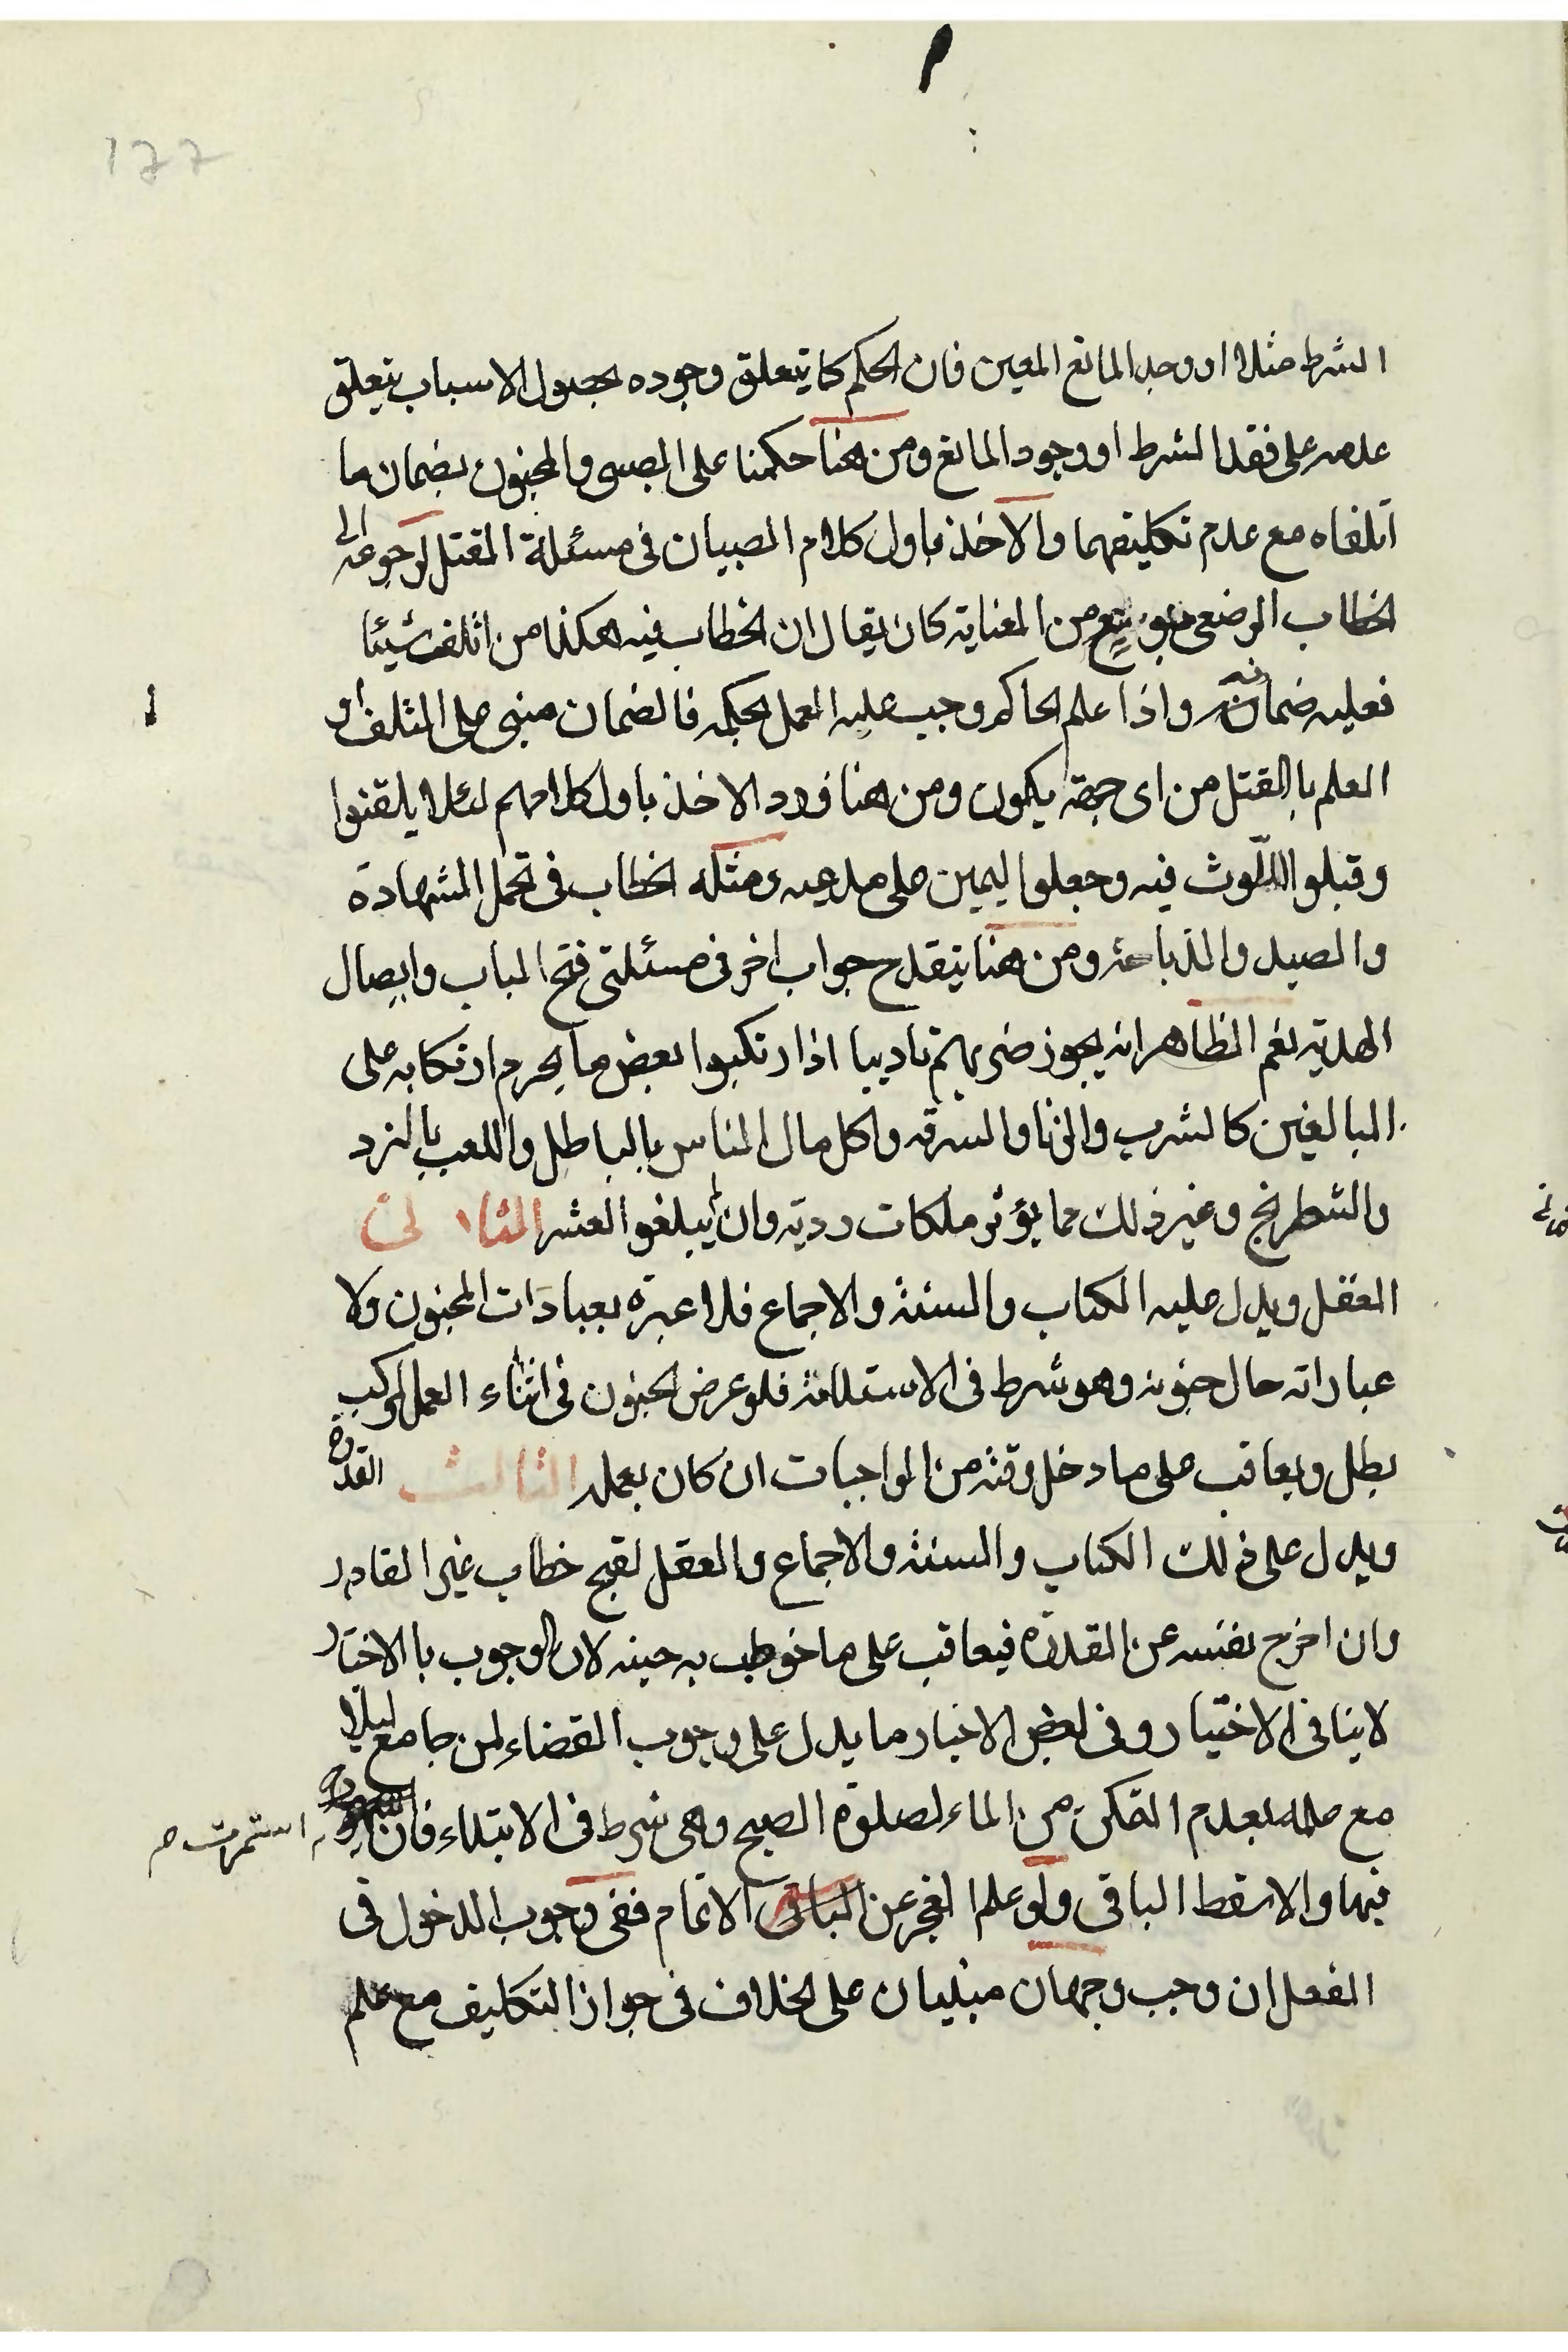 177
الشرط مثلا او وجد المانع المعين فان الحكم كما يتعلق وجوده بحصول الاسباب يتعلق
عدمه على فقد الشرط او وجود المانع ومن هنا حكمنا على الصبي والمجنون بضمان ما
اتلفاه مع عدم تكليفهما والاخذ باول كلام الصبيان في مسئلة القتل لرجوعه الى
الخطاب الوضعي من العناية كان يقال ان الخطاب فيه هكذا من اتلف شيئا
فعليه ضمانه واذا علم الحاكم وجب عليه العمل بحكمه فالضمان مبني على المتلف او
العلم بالقتل من اى جهة يكون ومن هنا ورد الاخذ باول كلامهم لئلا يلقنوا
وقبلوا اللوث فيه وجعلوا اليمين على مدعيه ومثله الخطاب في تحمل الشهادة
والصيد والذباحة ومن هنا ينقدح جواب اخر في مسئلتي فتح الباب وايصال
الهدية نعم الظاهر انه يجوز ضربهم تاديبا اذا ارتكبوا بعض ما يحرم ارتكابه على
البالغين كالشرب والزنا والسرقه واكل مال الناس بالباطل واللعب بالنرد
والشطرنج وغير ذلك مما يؤثر ملكات رديه وان لم يبلغوا العشر الثاني
العقل ويدل عليه الكتاب والسنة والاجماع فلا عبرة بعبادات المجنون ولا
عباراته حال جنونه وهو شرط في الاستدامة فلو عرض الجنون في اثناء العمل المركب
بطل ويعاقب على ما دخل وقته من الواجبات ان كان بعمله الثالث القدرة
ويدل على ذلك الكتاب والسنة والاجماع والعقل لقبح خطاب غير القادر
وان اخرج نفسه عن القدرة فيعاقب على ما خوطب به حينه لان الوجوب با الاختيار
لا ينافي الاختيار وفي بعض الاخبار ما يدل على وجوب القضاء لمن جامع ليلا
مع علمه بعدم التمكن من الماء لصلوة الصبح وهي شرط في الابتداء فان استمرت
فيها والا سقط الباقي ولو علم العجز عن الاتمام ففي وجوب الدخول في
الفعل ان وجب وجهان مبنيان على الخلاف في جواز التكليف مع علم